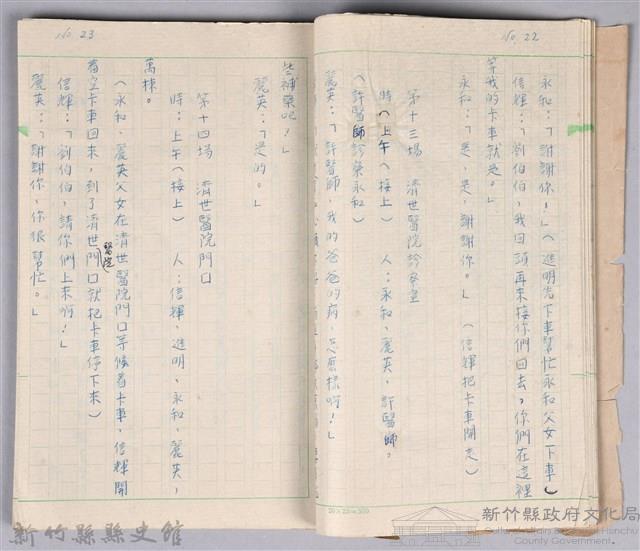 No. 22
永和：「謝謝你！」（進明先下車幫忙永和父女下車）
信輝：「劉伯伯，我回頭再來接你們回去，你們在這裡
等我的卡車就是。」
永和：「是，是，謝謝你。」（信輝把卡車開走）
第十三場　濟世醫院診察室
時：上午（接上）　人：永和、麗英、許醫師。
（許醫師診察永和）
麗英：「許醫師，我的爸爸的病，怎麼樣呀！」
No. 23
些補藥吧！」
麗英：「是的。」
第十四場　濟世醫院門口
時：上午（接上）　人：信輝、進明、永和、麗英，
萬棟。
（永和、麗英父女在濟世醫院門口等候着卡車，信輝開
着空卡車回來，到了濟世醫院門口就把卡車停下來）
信輝：「劉伯伯，請你們上來呀！」
麗英：「謝謝你，你很幫忙。」
20×25=500
新竹縣縣史館
新竹縣政府文化局
Cultural Affairs Bureau of Hsinchu
County Government.